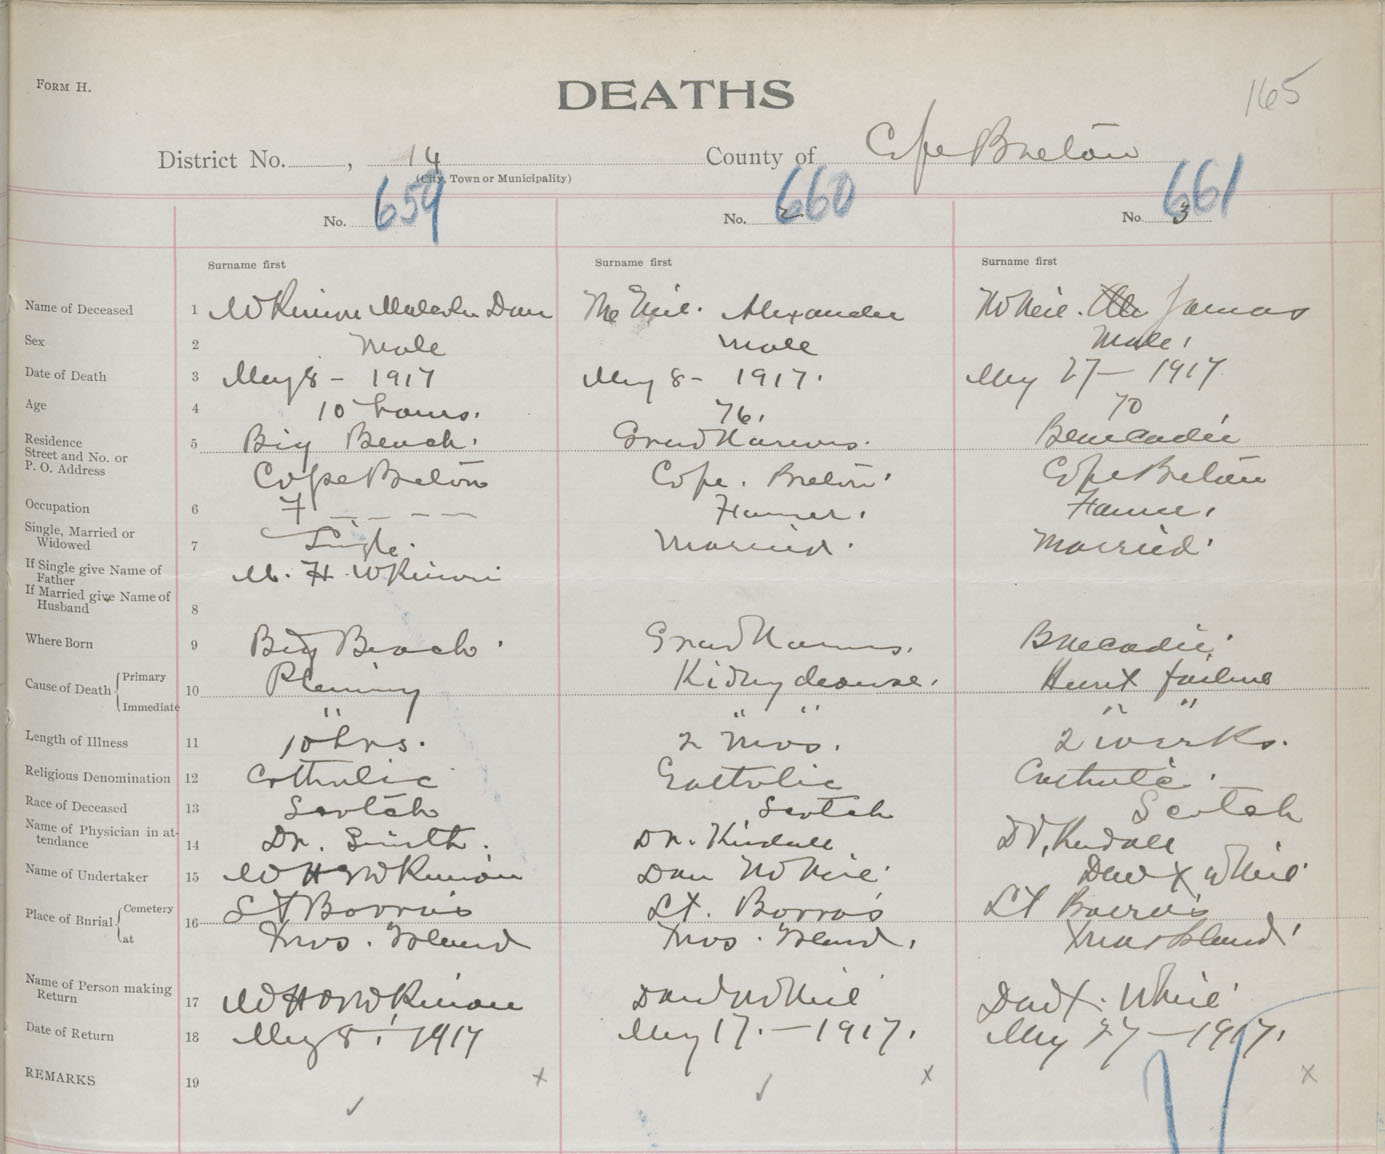 FORM H.
DEATHS
165
District No. , 14
County of Cape Breton
(City, Town or Municipality)
No. 659
No. 2 660
No. 3 661
Surname first
Surname first
Surname first
Name of Deceased 1 Malcolm Dan
McNeil. Alexander
McNeil. James
Sex 2 Male
Male
Male.
Date of Death 3 May 8 - 1917
May 8 - 1917.
May 27 - 1917
Age 4 10 hours.
76.
70
Residence
Street and No. or
P. O. Address
5 Big Beach.
Grand Narrows.
Benacadie
Cape Breton
Cape. Breton.
Cape Breton
Occupation 6 F – – – –
Farmer.
Farmer.
Single, Married or
Widowed
7 Single.
Married.
Married.
If Single give Name of
Father
M. H.
If Married give Name of
Husband
8
Where Born 9 Big Beach.
Grand Narrows.
Benacadie.
Cause of Death { Primary 10
Kidney disease.
Heart failure
Immediate "
" "
" "
Length of Illness 11 10 hrs.
2 mos.
2 weeks.
Religious Denomination 12 Catholic
Catholic
Catholic.
Race of Deceased 13 Scotch
Scotch
Scotch
Name of Physician in at-
tendance
14 Dr. Smith.
Dr. Kendall
Dr. Kendall
Name of Undertaker 15
Dan McNeil
McNeil
Place of Burial { Cemetery 16 St Barra's
St. Barra's
St Barra's
at Xmas. Island
Xmas. Island.
Xmas Island.
Name of Person making
Return
17
McNeil
McNeil
Date of Return 18 May 8, 1917
May 17. - 1917.
May 27 - 1917.
REMARKS 19 ✓ x
✓ x
x